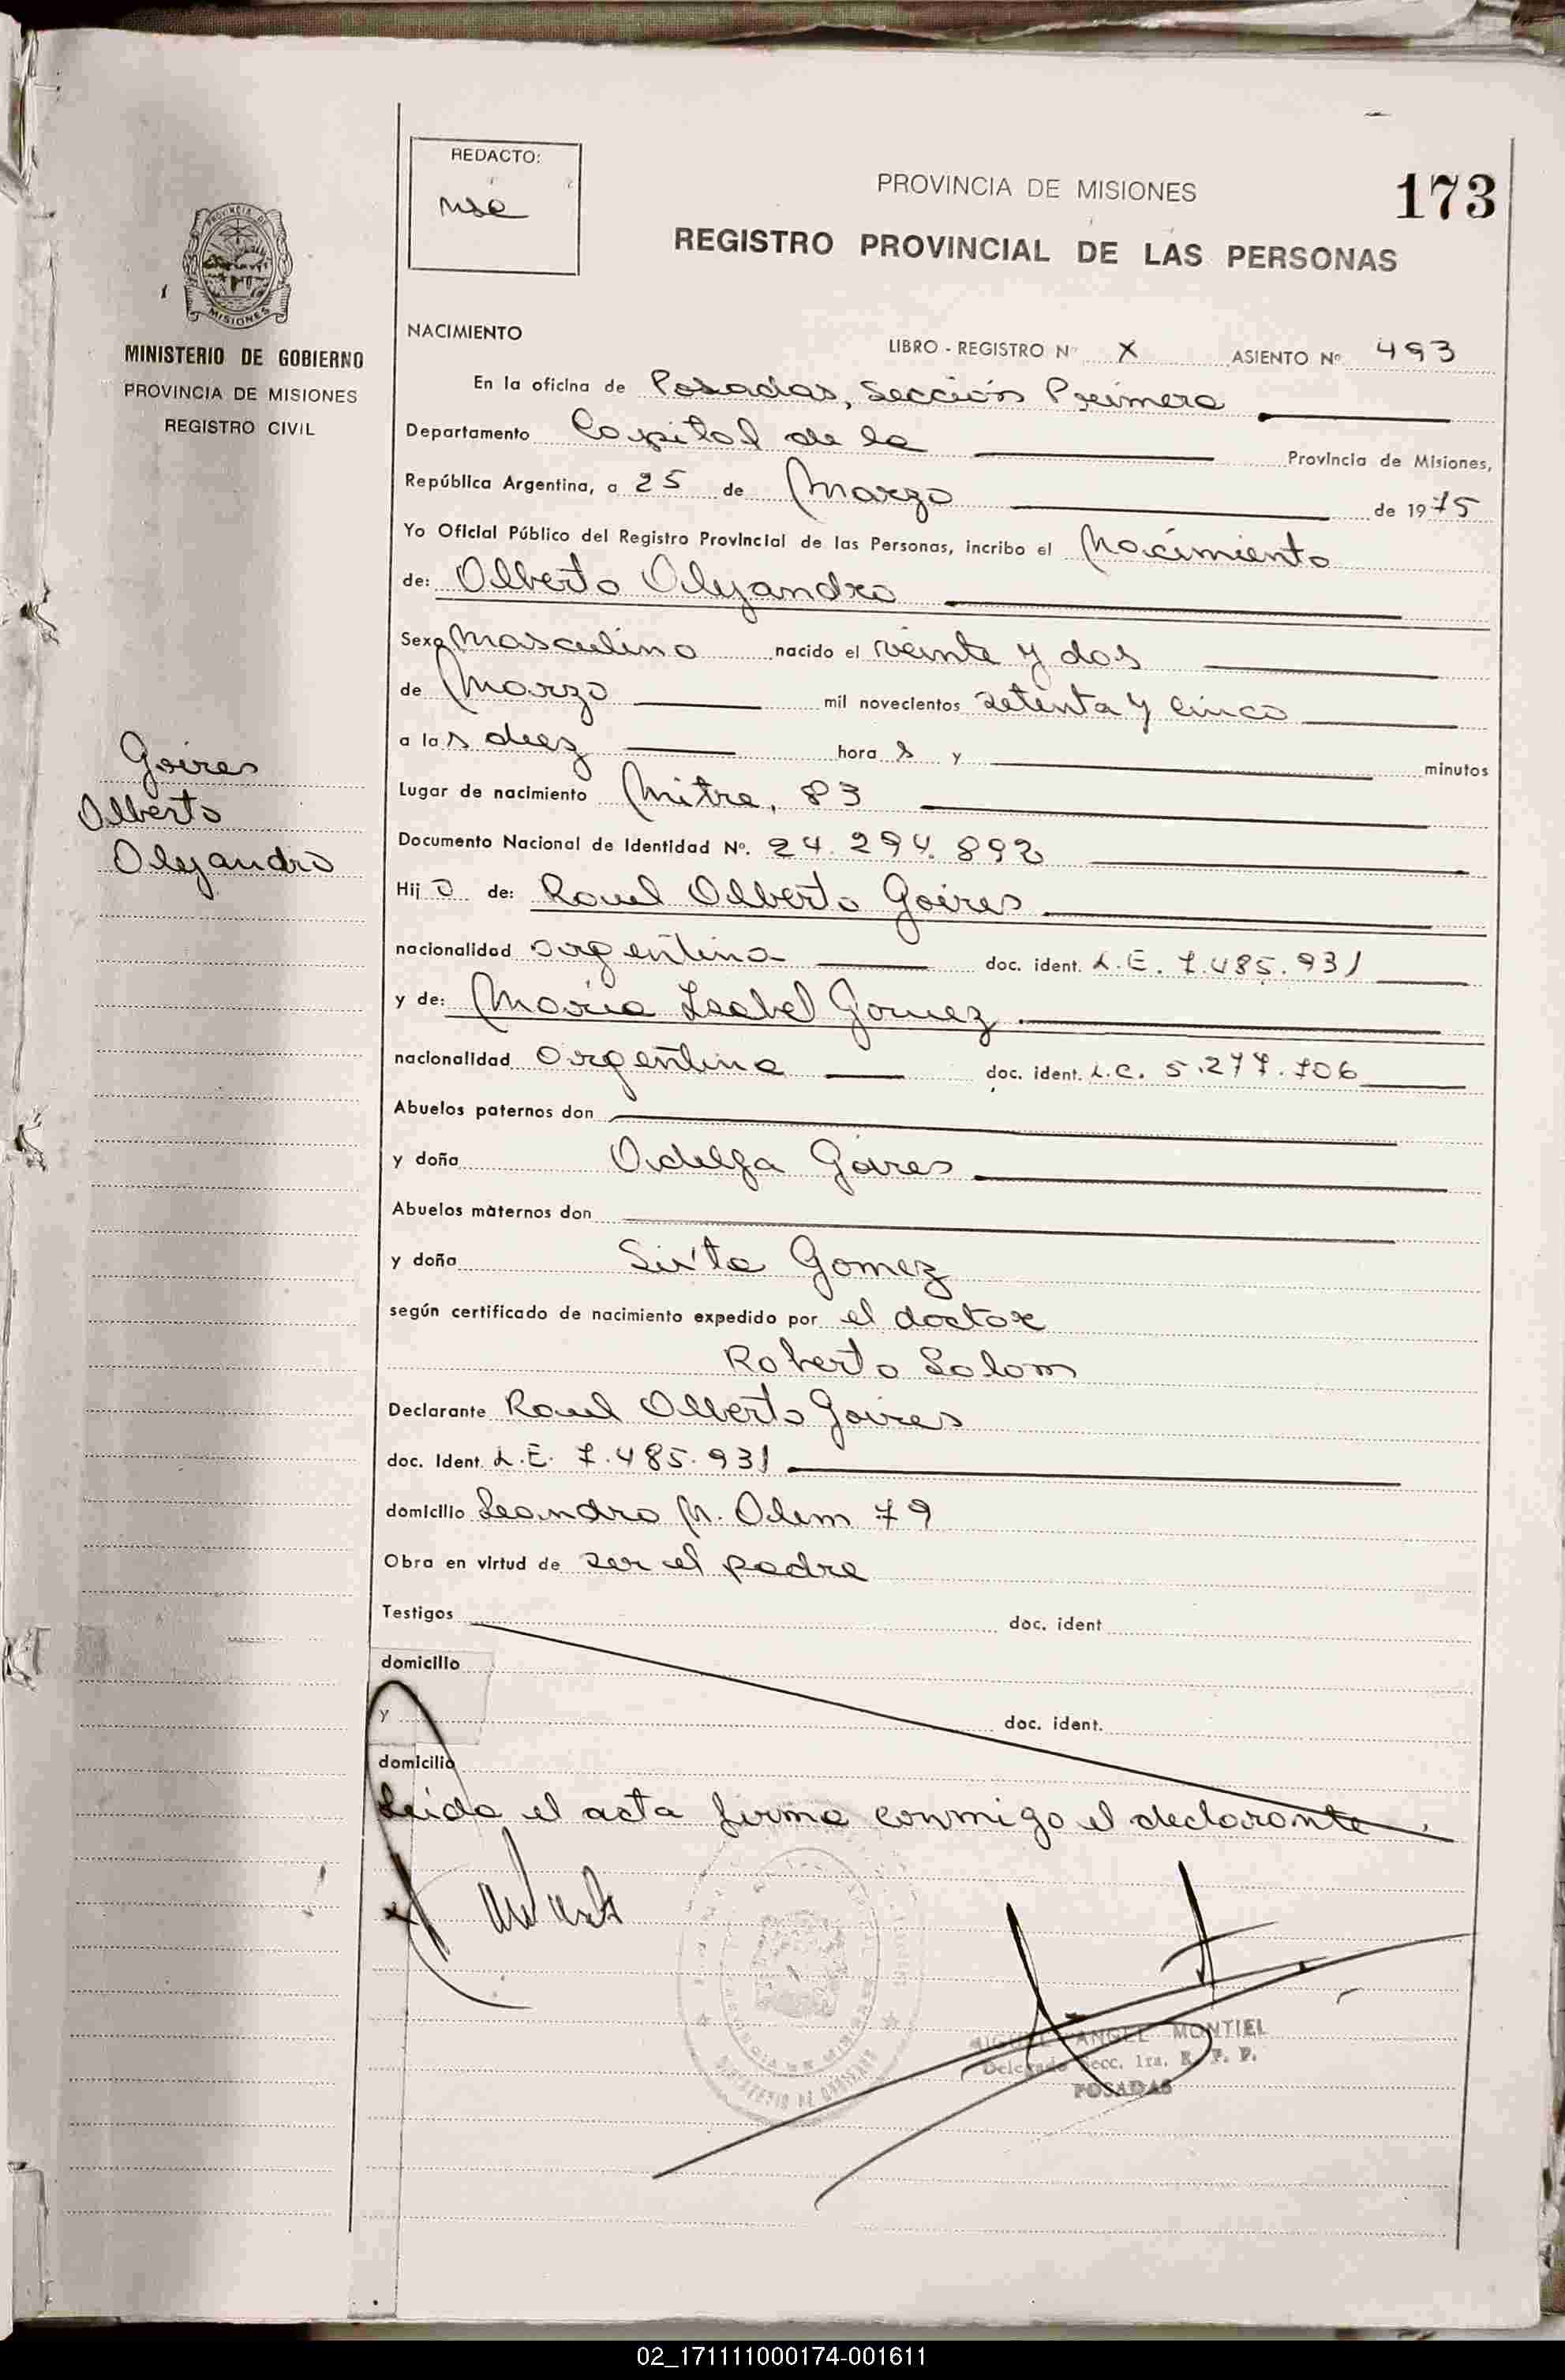 REDACTO:
mse
PROVINCIA DE MISIONES
173
REGISTRO PROVINCIAL DE LAS PERSONAS
PROVINCIA DE
MISIONES
MINISTERIO DE GOBIERNO
PROVINCIA DE MISIONES
REGISTRO CIVIL
NACIMIENTO
LIBRO - REGISTRO Nº X ASIENTO Nº 493
En la oficina de Posadas, Sección Primera
Departamento Capital de la Provincia de Misiones,
República Argentina, a 25 de Marzo de 1975
Yo Oficial Público del Registro Provincial de las Personas, incribo el Nacimiento
de: Alberto Alejandro
Sexo Masculino nacido el veinte y dos
de Marzo mil novecientos setenta y cinco
a las diez hora s y minutos
Lugar de nacimiento Mitre, 83
Documento Nacional de Identidad Nº. 24.294.892
Hijo de: Raul Alberto Goires
nacionalidad argentina doc. ident. L.E. 7.485.931
y de: Maria Isabel Gomez
nacionalidad argentina doc. ident. L.C. 5.277.706
Abuelos paternos don
y doña Adelfa Goires
Abuelos maternos don
y doña Sixta Gomez
según certificado de nacimiento expedido por el doctor
Roberto Solom
Declarante Raul Alberto Goires
doc. Ident. L.E. 7.485.931
domicilio Leandro N. Alem 79
Obra en virtud de ser el padre
Testigos doc. ident
domicilio
y doc. ident.
domicilio
Leida el acta firma conmigo el declarante
Goires
Alberto
Alejandro
MIGUEL ANGEL MONTIEL
Delegado Secc. 1ra. R. P. P.
POSADAS
02_171111000174-001611